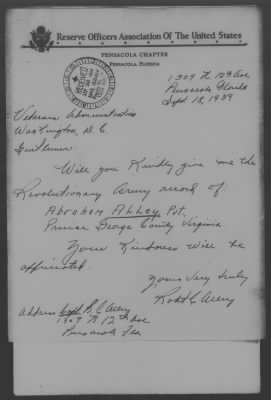 Reserve Officers Association Of The United States
PENSACOLA CHAPTER
PENSACOLA, FLORIDA
1309 N 12th Ave
Pensacola Florida
Sept 18, 1939
Veterans Administration
Washington, D.C.
Gentlemen
Will you Kindly give me the
Revolutionary Army record of:
Abraham Abbey Pvt.
Prince George County Virginia.
Your Kindness will be
appreciated.
Yours Very truly
Robt C Avery
Address R. C. Avery
1309 N 12th Ave
Pensacola Fla